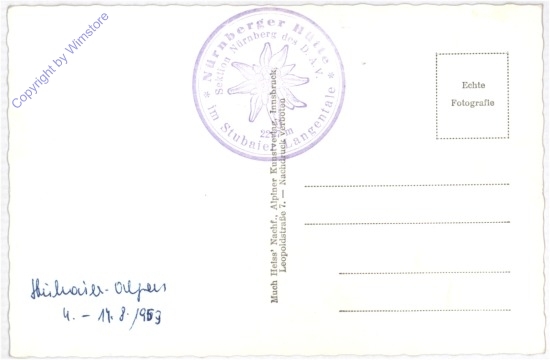 Copyright by Wimstore
* Nürnberger Hütte *
Sektion Nürnberg des D.A.V.
im Stubaier Langentale
Echte
Fotografie
Much Heiss' Nachf., Alpiner Kunstverlag, Innsbruck,
Leopoldstraße 7. — Nachdruck verboten
Stubaier-Alpen